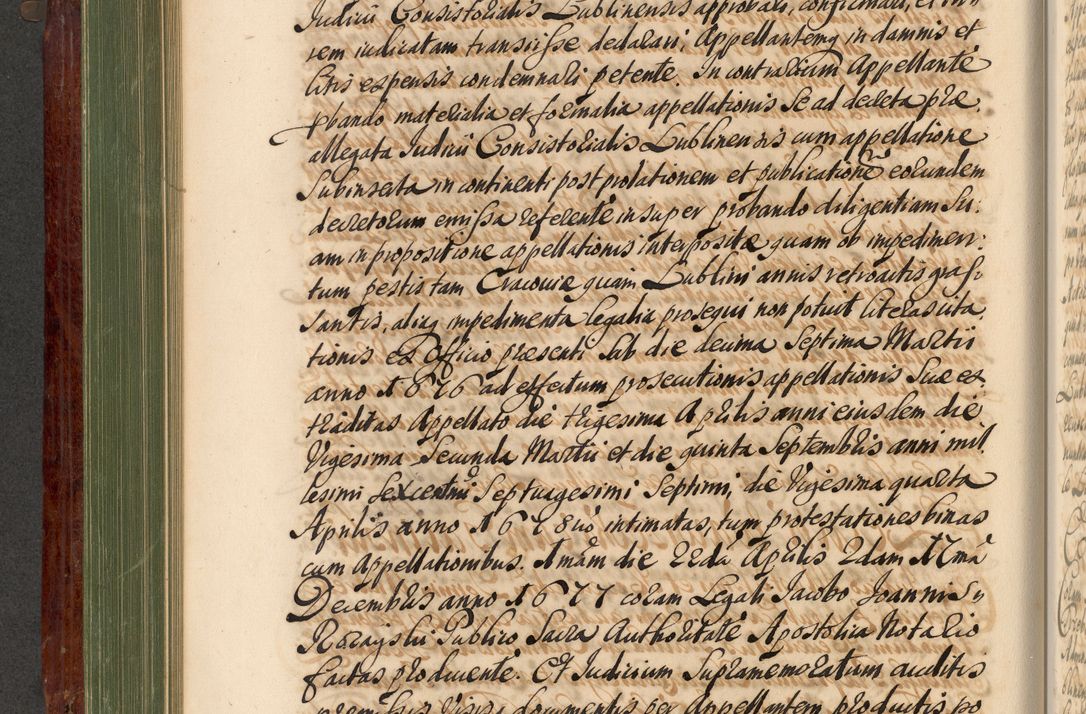 Judicii Consistorialis Lublinensis approbari, confirmari, et in
rem iudicatam transiisse declarari, Appellantemq in damnis et
litis expensis condemnari petente. In contrarium Appellante
pbando materialia et formalia appellationis se ad decreta præ,
allegata Judicii Consistorialis Lublinensis cum appellatione
subinserta in continenti post prolationem et publicatione eorundem
decretorum emissa referente insuper probando diligentiam su:
am in propositione appellationis interpositæ quam ob impedimen:
tum pestis tam Cracoviæ quam Lublini annis retroactis gras:
santis, aliaq impedimenta legalia prosequi non potuit literas cita,
tionis ex Officio præsenti sub die decima septima Martii
anno 1676 ad effectum prosecutionis appellationis suæ ex,
traditas Appellato die trigesima Aprilis anni eiusdem die
Vigesima Secunda Martii et die quinta Septembris anni mil
lesimi sexcentmi Septuagesimi Septimi, die Vigesima quarta
Aprilis anno 1678vo intimatas, tum protestationes binas
cum Appellationibus. 1mam die 22da Aprilis 2dam 17ma
Decembris anno 1677 coram Legali Jacobo Joanni
Rozayski Publico Sacra Authoritate Apostolica Notario
factas producente. Et Judicium supramemoratum auditis
præmissis visis, documentis per Appellantem productis